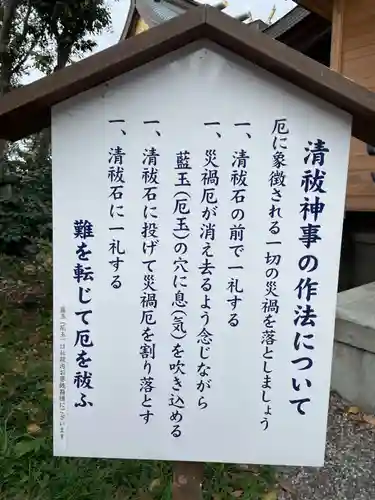 清祓神事の作法について
厄に象徴される一切の災禍を落としましょう
一、清祓石の前で一礼する
一、災禍厄が消え去るよう念じながら
藍玉（厄玉）の穴に息（気）を吹き込める
一、清祓石に投げて災禍厄を割り落とす
一、清祓石に一礼する
難を転じて厄を祓ふ
藍玉（厄玉）は社殿内お守授与所にございます